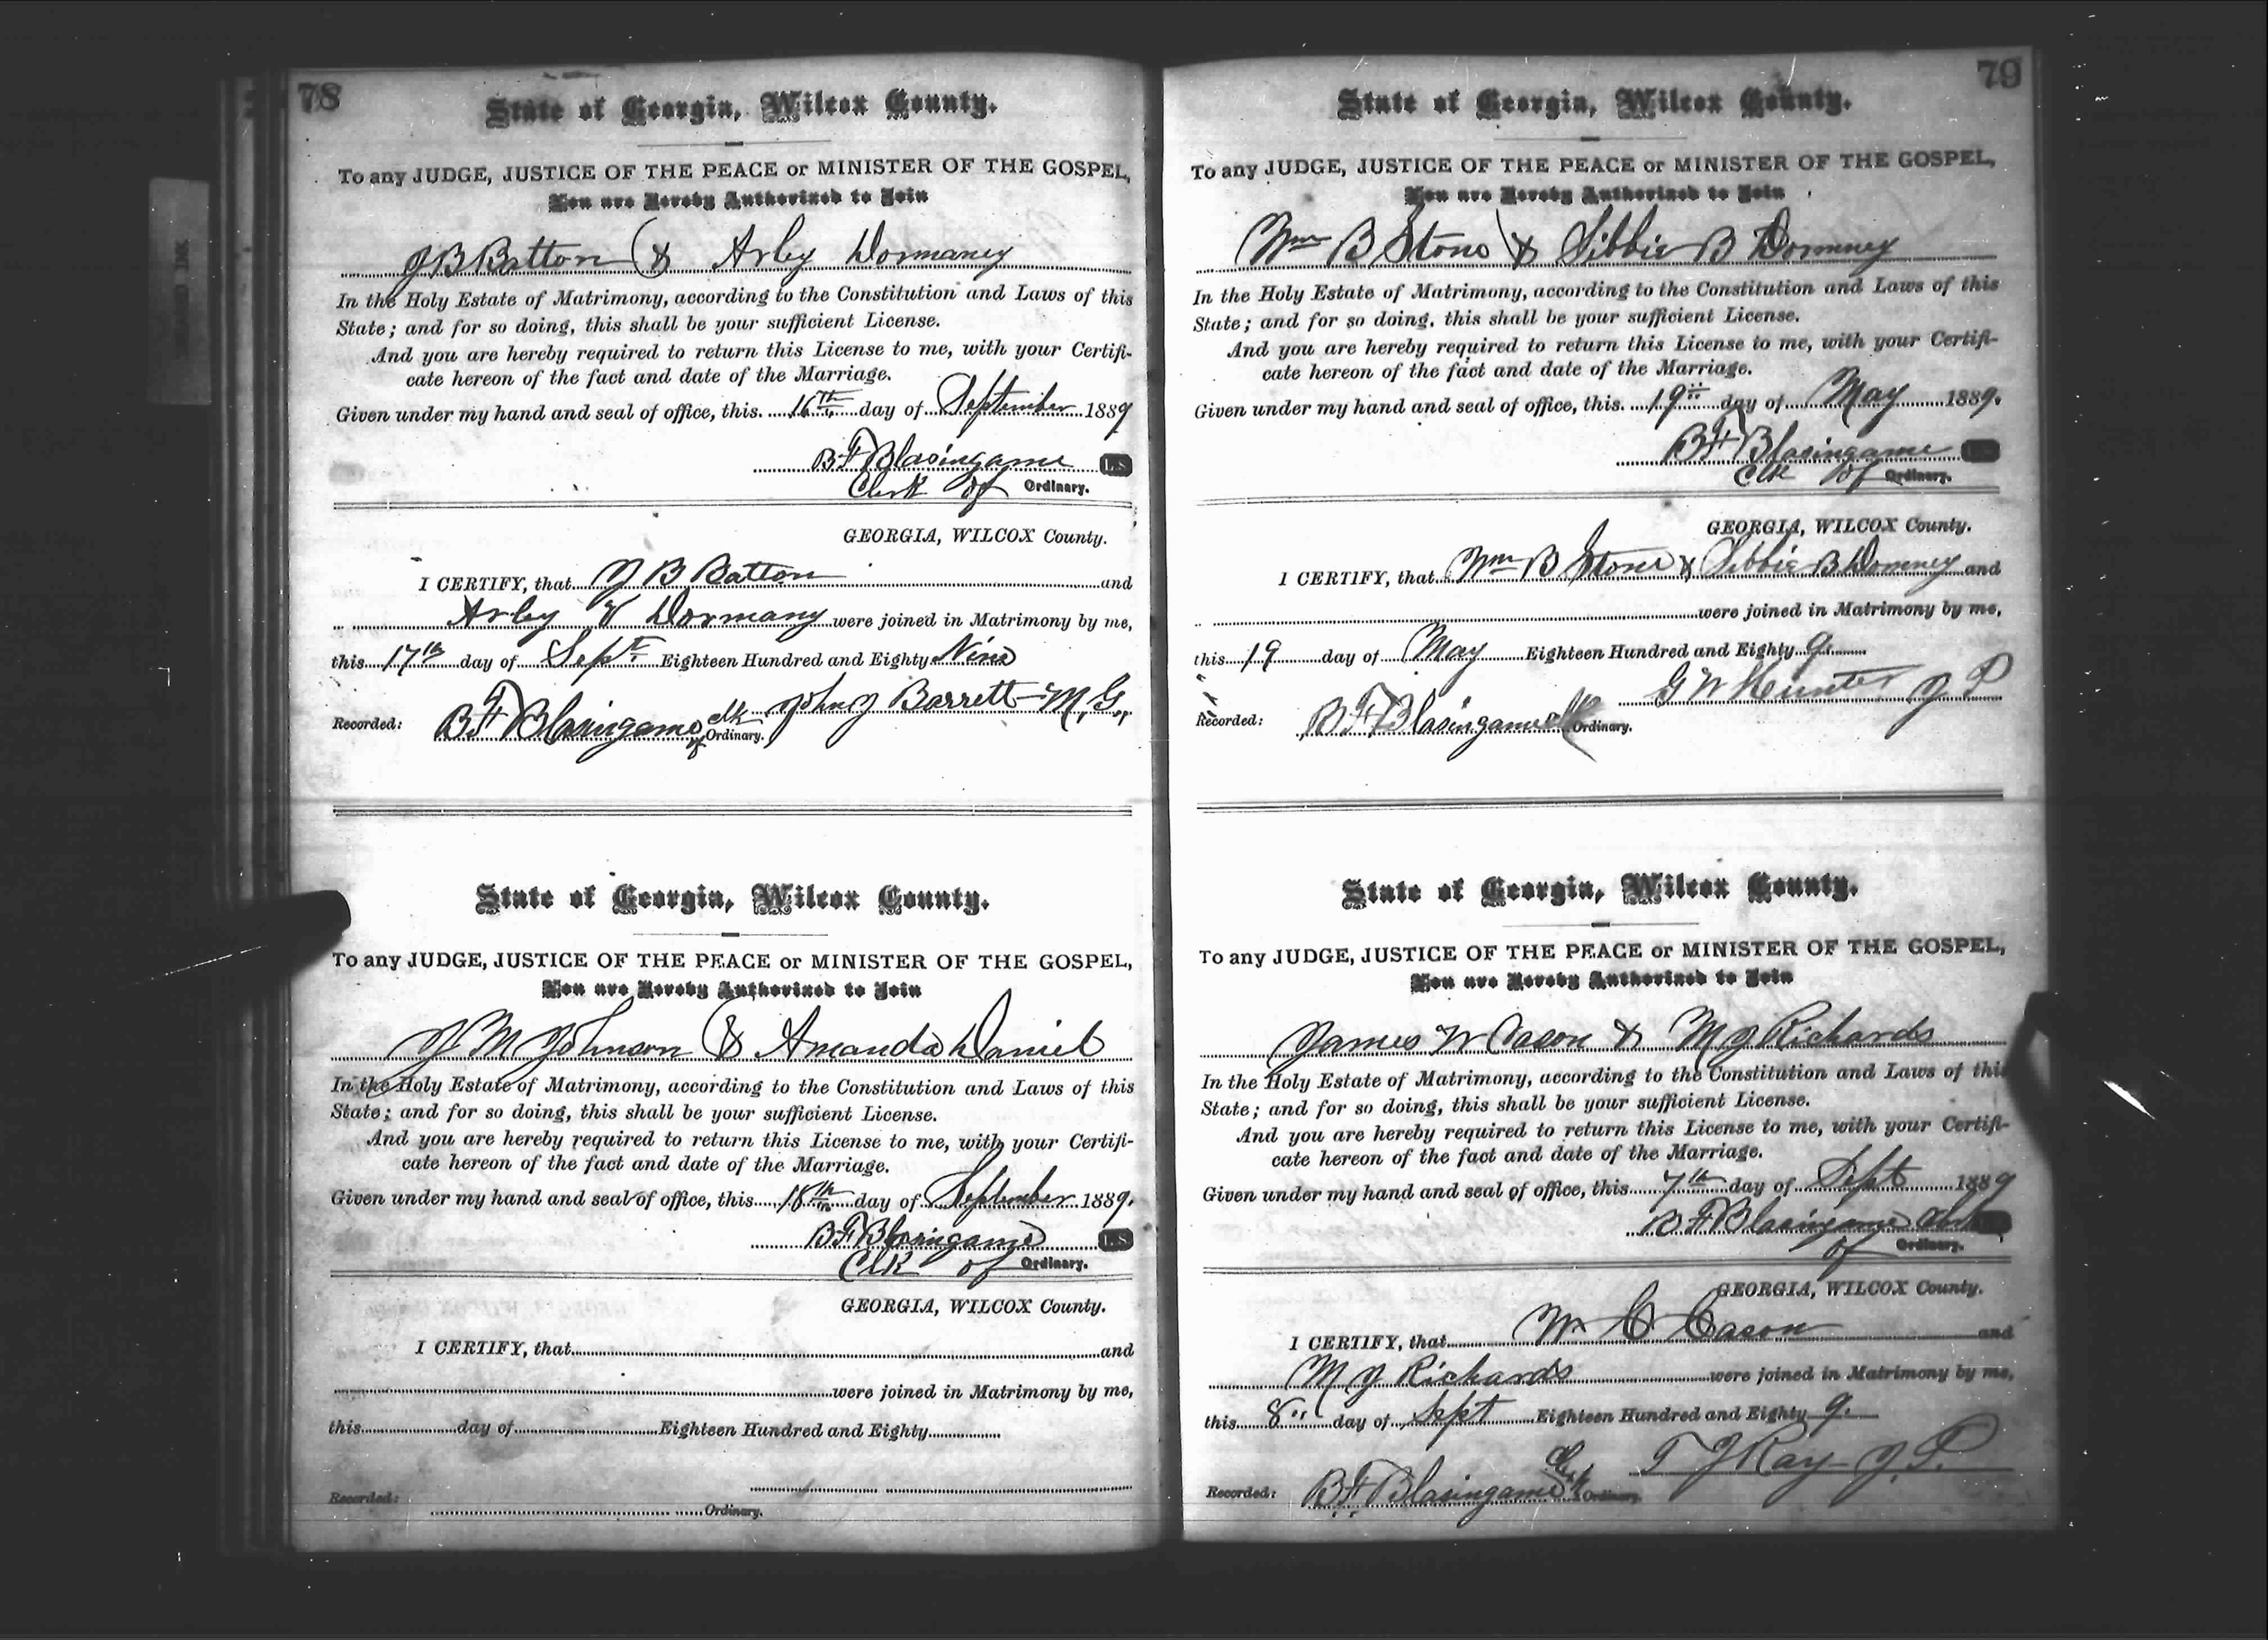 78
State of Georgia, Wilcox County.
To any JUDGE, JUSTICE OF THE PEACE or MINISTER OF THE GOSPEL,
You are Hereby Authorized to Join
J B Batton & Arby Dormaney
In the Holy Estate of Matrimony, according to the Constitution and Laws of this
State; and for so doing, this shall be your sufficient License.
And you are hereby required to return this License to me, with your Certifi-
cate hereon of the fact and date of the Marriage.
Given under my hand and seal of office, this 16th day of September 1889
B F Blasingame L.S.
Clerk of Ordinary.
GEORGIA, WILCOX County.
I CERTIFY, that J B Batton and
Arby V Dormany were joined in Matrimony by me,
this 17th day of Sept Eighteen Hundred and Eighty Nine
John J Barrett M.G.,
Recorded: B F Blasingame clk of Ordinary.
State of Georgia, Wilcox County.
To any JUDGE, JUSTICE OF THE PEACE or MINISTER OF THE GOSPEL,
You are Hereby Authorized to Join
J M Johnson & Amanda Daniel
In the Holy Estate of Matrimony, according to the Constitution and Laws of this
State; and for so doing, this shall be your sufficient License.
And you are hereby required to return this License to me, with your Certifi-
cate hereon of the fact and date of the Marriage.
Given under my hand and seal of office, this 18th day of September 1889.
B F Blasingame L.S.
Clk of Ordinary.
GEORGIA, WILCOX County.
I CERTIFY, that and
were joined in Matrimony by me,
this day of Eighteen Hundred and Eighty
Recorded: Ordinary.
79
State of Georgia, Wilcox County.
To any JUDGE, JUSTICE OF THE PEACE or MINISTER OF THE GOSPEL,
You are Hereby Authorized to Join
Wm B Stone & Sibbie B Domney
In the Holy Estate of Matrimony, according to the Constitution and Laws of this
State; and for so doing, this shall be your sufficient License.
And you are hereby required to return this License to me, with your Certifi-
cate hereon of the fact and date of the Marriage.
Given under my hand and seal of office, this 19" day of May 1889.
B F Blasingame
Clk of Ordinary.
GEORGIA, WILCOX County.
I CERTIFY, that Wm B Stone & Sibbie B Domney and
were joined in Matrimony by me,
this 19 day of May Eighteen Hundred and Eighty 9.
G W Hunter J P
Recorded: B F Blasingame clk Ordinary.
State of Georgia, Wilcox County.
To any JUDGE, JUSTICE OF THE PEACE or MINISTER OF THE GOSPEL,
You are Hereby Authorized to Join
James W Cason & M J Richards
In the Holy Estate of Matrimony, according to the Constitution and Laws of this
State; and for so doing, this shall be your sufficient License.
And you are hereby required to return this License to me, with your Certifi-
cate hereon of the fact and date of the Marriage.
Given under my hand and seal of office, this 7th day of Sept 1889
B F Blasingame Clerk
of Ordinary.
GEORGIA, WILCOX County.
I CERTIFY, that W C Cason and
M J Richards were joined in Matrimony by me,
this 8" day of Sept Eighteen Hundred and Eighty 9.
T J Ray J.P.
Recorded: B F Blasingame Clerk Ordinary.